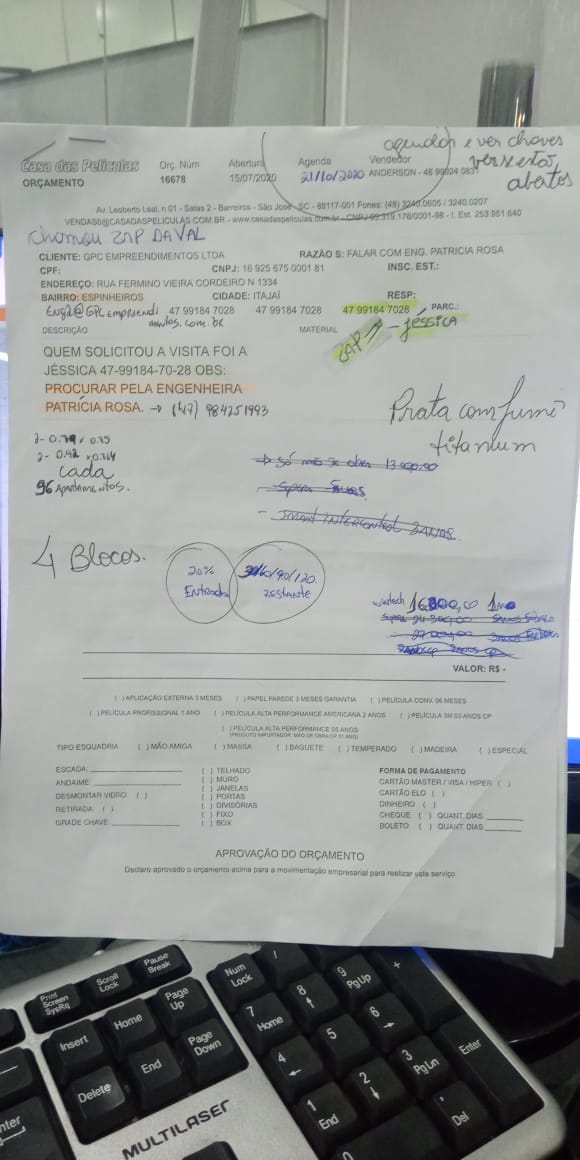 agendar e ver chaves
abertos
Casa das Películas Orç. Núm Abertura Agenda Vendedor
ORÇAMENTO 16678 15/07/2020 21/10/2020 ANDERSON - 48
Av. Leoberto Leal, n 01 - Salas 2 - Barreiros - São José - SC - 88117-001 Fones: (48) 3240.0605 / 3240.0207
VENDAS6@CASADASPELICULAS.COM.BR - www.casadaspeliculas.com.br - CNPJ 95.319.178/0001-98 - I. Est. 253.951.640
Chamou ZAP DAVAL
CLIENTE: GPC EMPREENDIMENTOS LTDA RAZÃO S: FALAR COM ENG. PATRICIA ROSA
CPF: CNPJ: 16 925 675 0001 81 INSC. EST.:
ENDEREÇO: RUA FERMINO VIEIRA CORDEIRO N 1334
BAIRRO: ESPINHEIROS CIDADE: ITAJAÍ RESP:
Eng2@GPCempreendi 47 99184 7028 47 99184 7028 47 99184 7028 PARC.:
mentos.com.br
DESCRIÇÃO MATERIAL ZAP → - JÉSSICA
QUEM SOLICITOU A VISITA FOI A
JÉSSICA 47-99184-70-28 OBS:
PROCURAR PELA ENGENHEIRA
PATRÍCIA ROSA. → (47) 984251993
Prata com fumê
titanium
2- 0.79 x 0.75
2- 0.92 x 0.764
cada
96 Apartamentos.
→ só mão de obra 13.000,00
4 Blocos.
20%
Entrada
/90/120
restante
wintech 16.800,00 1 ano
VALOR: R$ -
( ) APLICAÇÃO EXTERNA 3 MESES ( ) PAPEL PAREDE 3 MESES GARANTIA ( ) PELÍCULA CONV. 06 MESES
( ) PELÍCULA PROFISSIONAL 1 ANO ( ) PELÍCULA ALTA PERFORMANCE AMERICANA 2 ANOS ( ) PELÍCULA 3M 03 ANOS CP
( ) PELÍCULA ALTA PERFORMANCE 05 ANOS
(PRODUTO IMPORTADOR, MÃO DE OBRA CP 01 ANO)
TIPO ESQUADRIA ( ) MÃO AMIGA ( ) MASSA ( ) BAGUETE ( ) TEMPERADO ( ) MADEIRA ( ) ESPECIAL
ESCADA: ( ) TELHADO FORMA DE PAGAMENTO
ANDAIME: ( ) MURO CARTÃO MASTER / VISA / HIPER ( )
DESMONTAR VIDRO ( ) ( ) JANELAS CARTÃO ELO ( )
RETIRADA: ( ) ( ) PORTAS DINHEIRO ( )
GRADE CHAVE: ( ) DIVISÓRIAS CHEQUE ( ) QUANT. DIAS
( ) FIXO BOLETO ( ) QUANT. DIAS
( ) BOX
APROVAÇÃO DO ORÇAMENTO
Declaro aprovado o orçamento acima para a movimentação empresarial para realizar este serviço
Print Screen SysRq
Scroll Lock
Pause Break
Insert
Home
Page Up
Num Lock
/
Delete
End
Page Down
7 Home
8
9 PgUp
+
4
5
6
1 End
2
3 PgDn
Enter
0
Del
MULTILASER